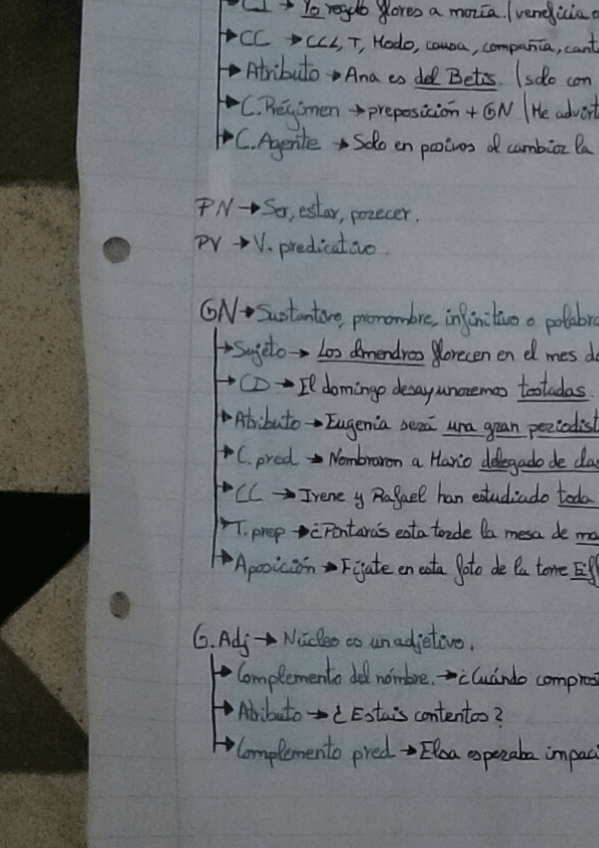 CI → Yo regalo flores a maría. (veneficia o
CC → CCL, T, Modo, causa, compañía, cant
Atributo → Ana es del Betis. (solo con
C. Régimen → preposición + GN (He advert
C. Agente → Solo en pasivas al cambiar la
PN → Ser, estar, parecer.
PV → V. predicativo.
GN → Sustantivo, pronombre, infinitivo o palabra
Sujeto → Los almendros florecen en el mes de
CD → El domingo desayunaremos tostadas.
Atributo → Eugenia será una gran periodist
C. pred → Nombraron a Mario delegado de clas
CC → Irene y Rafael han estudiado toda
T. prep → ¿Pintarás esta tarde la mesa de ma
Aposición → Fíjate en esta foto de la torre Eiff
G. Adj → Núcleo es un adjetivo.
Complemento del nómbre. → ¿Cuándo compras
Atributo → ¿Estais contentos?
Complemento pred → Elsa esperaba impaci